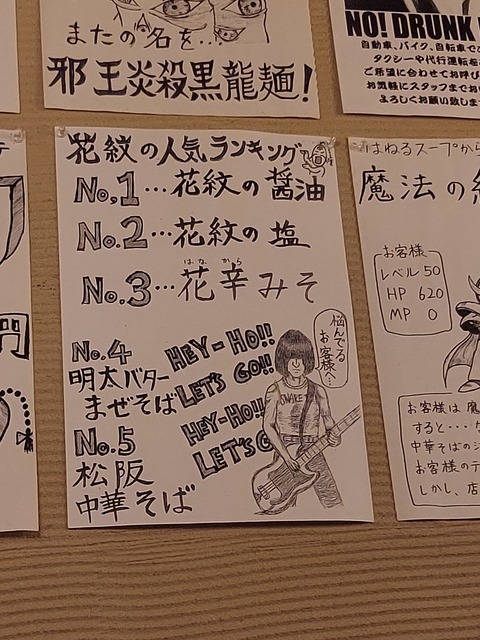 またの名を…
邪王炎殺黒龍麺!
NO! DRUNK
自動車、バイク、自転車で
タクシーや代行運転を
ご希望に合わせてお呼び
お気軽にスタッフまでお
よろしくお願い致しま
花紋の人気ランキング
No,1…花紋の醤油
No.2…花紋の塩
はな から
No.3…花辛みそ
No.4
明太バター
まぜそば
No.5
松阪
中華そば
HEY-HO!!
LET'S GO!!
HEY-HO!!
LET'S G
悩んでる
お客様へ…
SNAKE
はねるスープから
魔法の
お客様
レベル 50
HP 620
MP 0
お客様は魔
すると・・・
中華そばの
お客様のテ
しかし、店
円